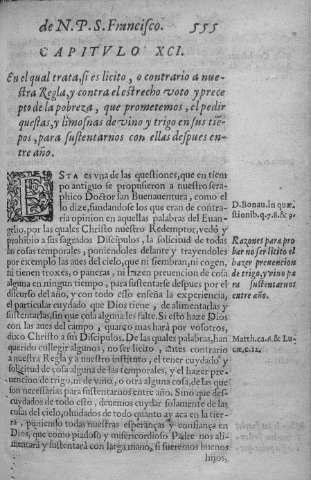 de N. P. S. Francisco. 555
CAPITVLO XCI.
En el qual trata, si es licito, o contrario a nue-
stra Regla, y contra el estrecho voto y prece
pto de la pobreza, que prometemos, el pedir
questas, y limosnas de vino y trigo en sus tiē-
pos, para sustentarnos con ellas despues en-
tre año.
ESTA es vna de las questiones, que en tiem
po antiguo se propusieron a nuestro sera-
phico Doctor san Buenauentura, como el
lo dize, fundandose los que eran de contra-
ria opinion en aquellas palabras del Euan-
gelio, por las quales Christo nuestro Redemptor, vedó y
prohibio a sus sagrados Discipulos, la solicitud de todas
las cosas temporales, poniendoles delante y trayendoles
por exemplo las aues del cielo, que ni siembran, ni cogen,
ni tienen troxes, o paneras, ni hazen preuencion de cosa
alguna en ningun tiempo, para sustentarse despues por el
discurso del año, y con todo esso enseña la experiencia,
el particular cuydado que Dios tiene, de alimentarlas y
sustentarlas, sin que cosa alguna les falte. Si esto haze Dios
con las aues del campo, quanto mas hará por vosotros,
dixo Christo a sus Discipulos. De las quales palabras, han
querido collegir algunos, no ser licito, antes contrario
a nuestra Regla y a nuestro instituto, el tener cuydado y
solicitud de cosa alguna de las temporales, y el hazer pre-
uencion de trigo, ni de vino, o otra alguna cosa, de las que
son necessarias para sustentarnos entre año. Sino que des-
cuydados de todo esto, deuemos cuydar solamente de las
cosas del cielo, oluidados de todo quanto ay aca en la tier-
ra, y poniendo todas nuestras esperanças y confiança en
Dios, que como piadoso y misericordioso Padre nos ali-
mentará y sustentará con larga mano, si fueremos buenos
hijos,
D. Bonau. in quæ
stionib. q. 7. 8. & 9.
Razones para pro
bar no ser licito el
hazer preuencion
de trigo, y vino pa
ra sustentarnos
entre año.
Matth. ca. 6. & Lu-
cæ, c. 12.